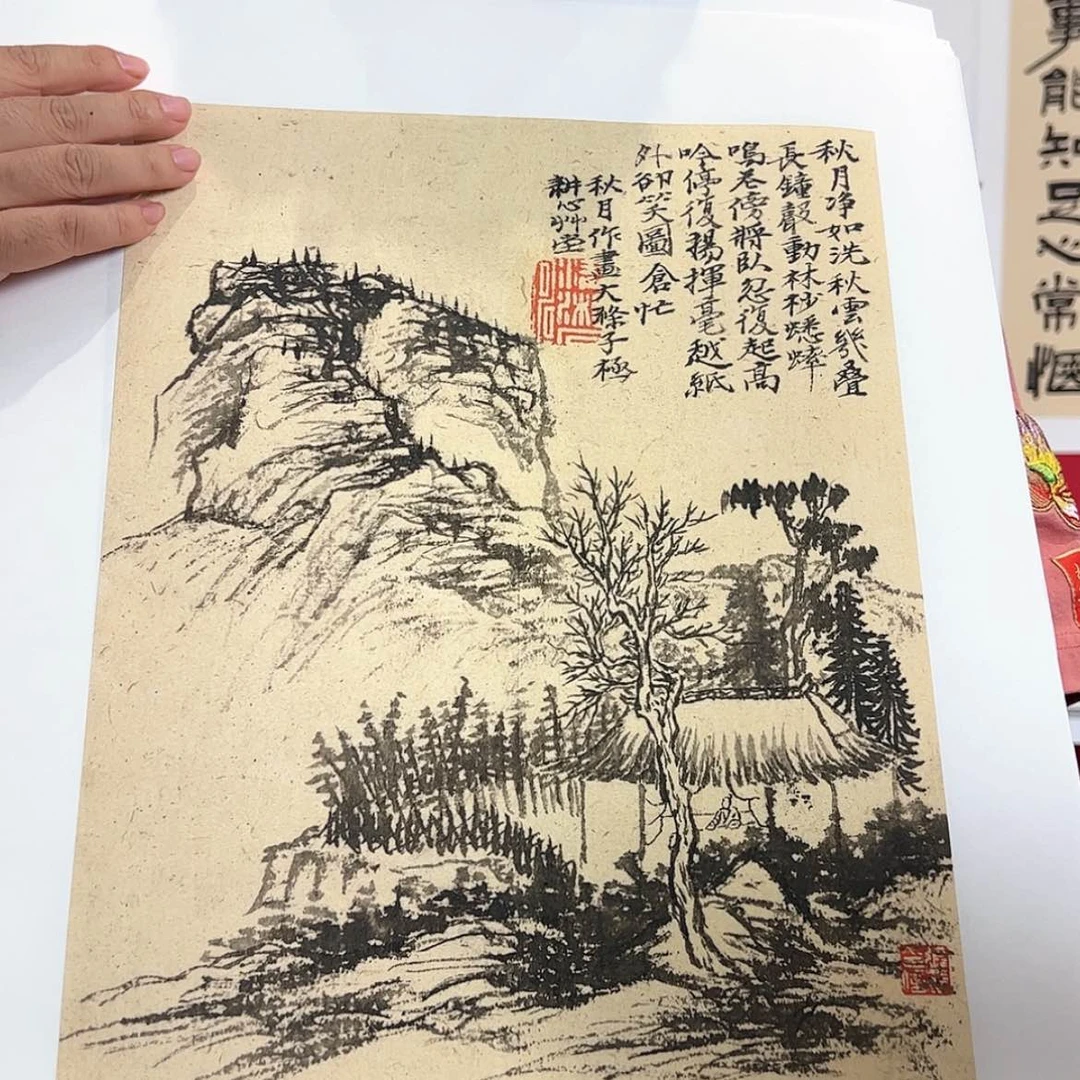 秋月净如洗秋雲幾疊
長鐘聲動林杪蟋蟀
鳴吾傍將臥忽復起高
吟停復揚揮毫越紙
外卻笑圖倉忙
秋月作畫大滌子極
耕心艸堂
事能知足心常愜